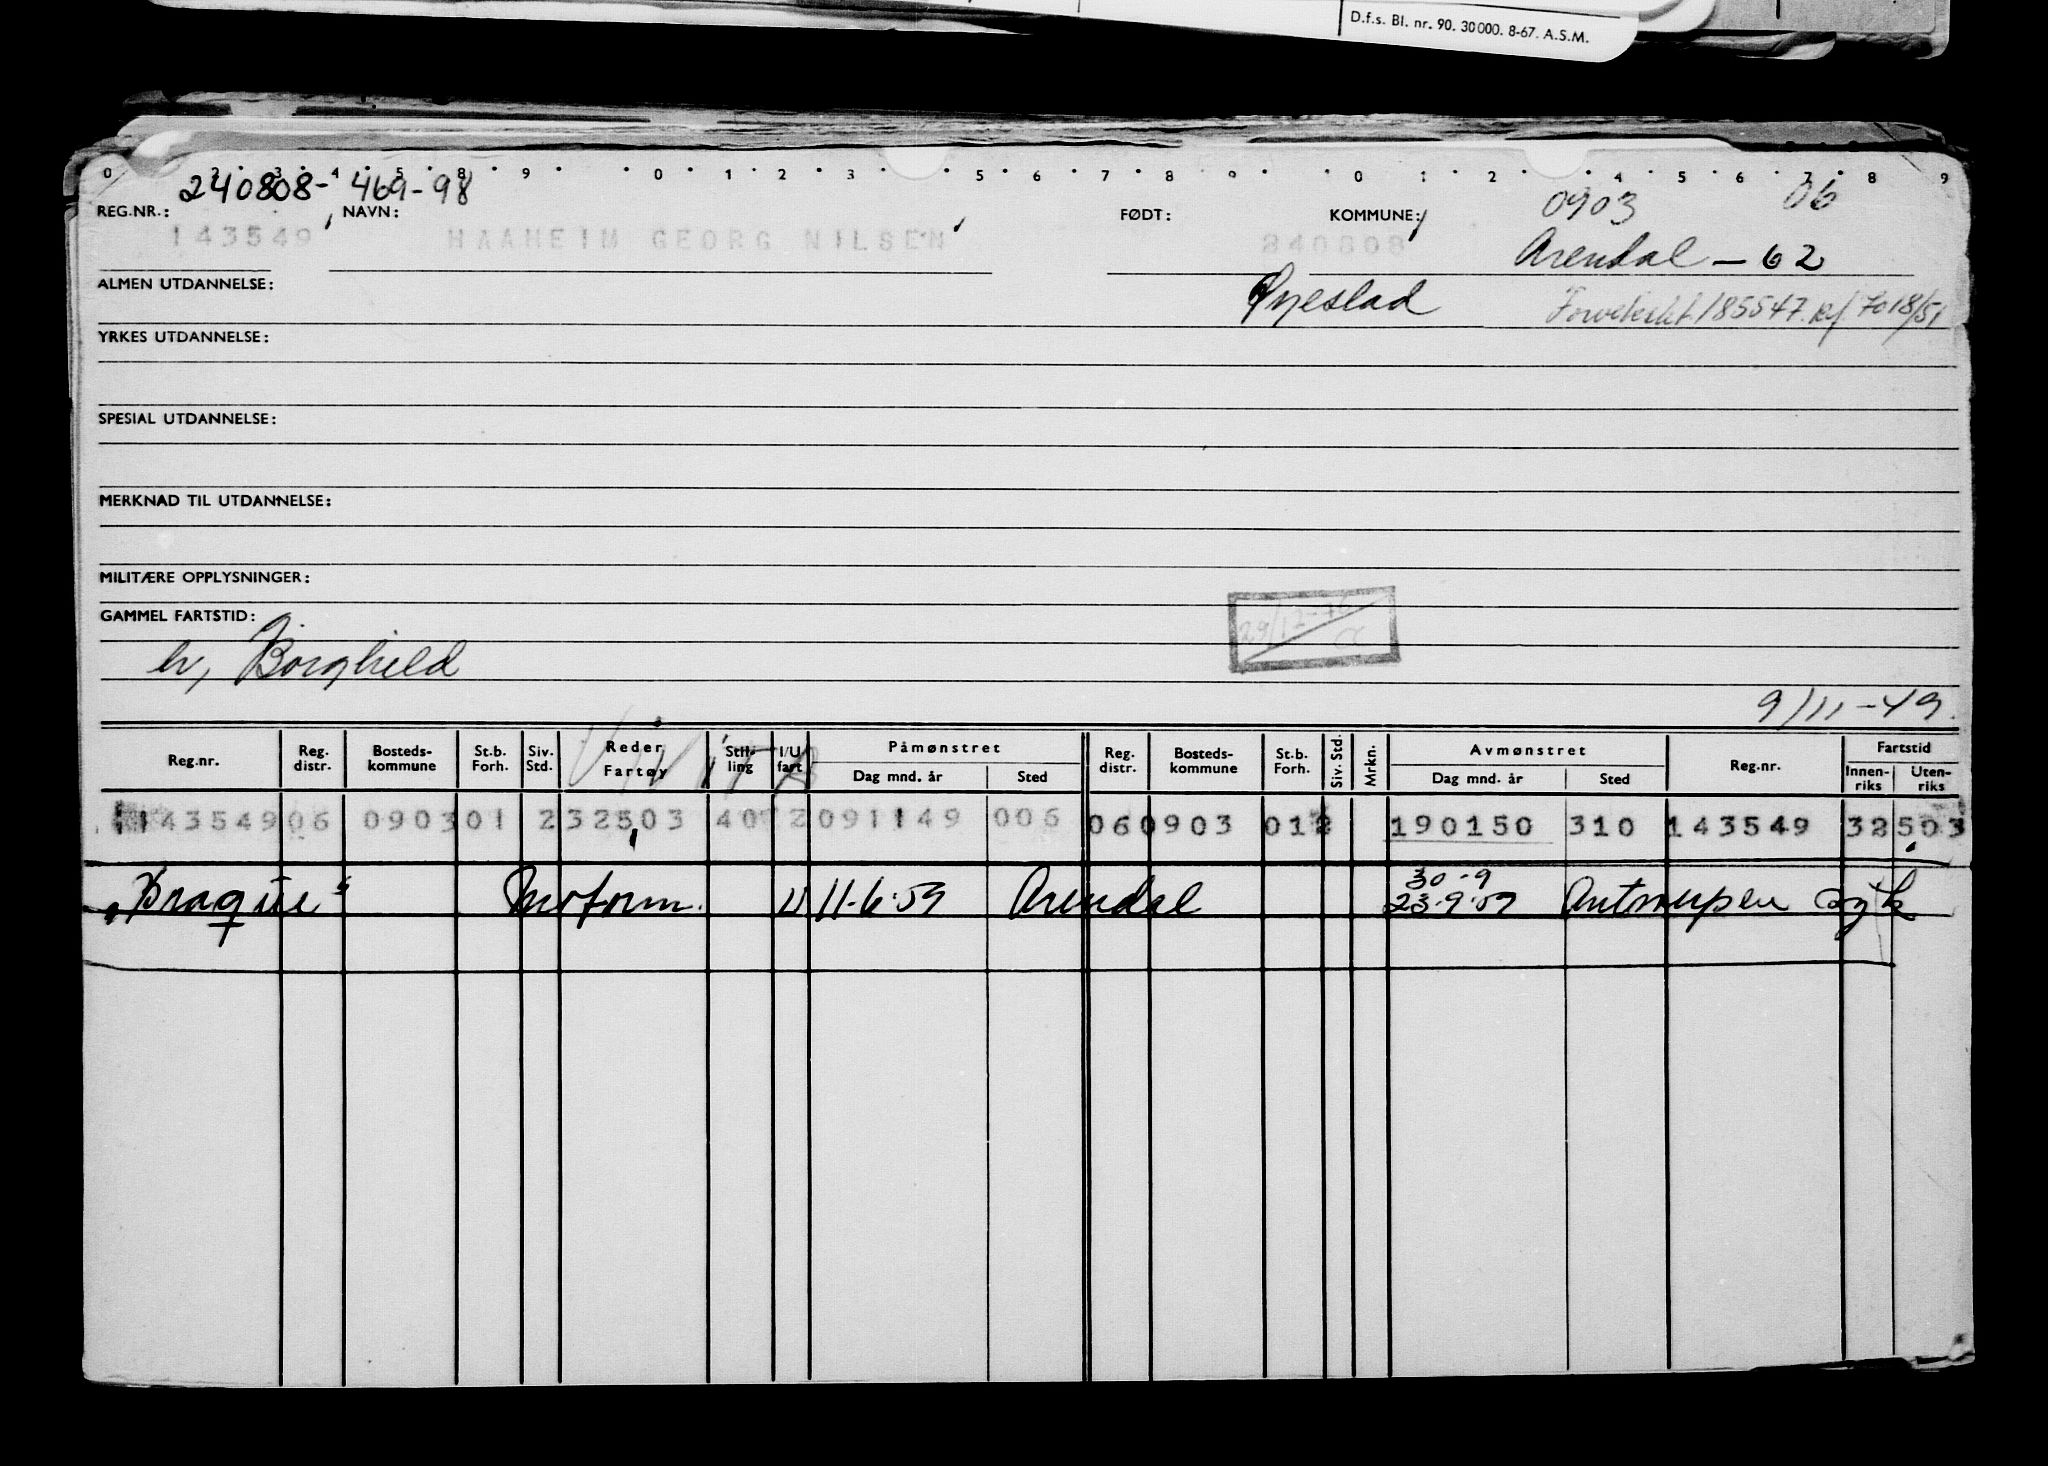 D.f.s. Bl. nr. 90. 30 000. 8-67. A.S.M.
0 2 3 4 5 8 9 0 1 2 3 5 6 7 8 9 0 1 2 4 5 6 7 8 9
240808-469-98
0903 06
REG.NR.: NAVN: FØDT: KOMMUNE:
143549 HAAHEIM GEORG NILSEN 240808
Arendal - 62
ALMEN UTDANNELSE:
Øyestad 185547. 7018/51
YRKES UTDANNELSE:
SPESIAL UTDANNELSE:
MERKNAD TIL UTDANNELSE:
MILITÆRE OPPLYSNINGER:
29/12-76
GAMMEL FARTSTID:
h, Borghild
9/11-49.
Reg.nr. Reg. distr. Bosteds-kommune St.b. Forh. Siv. Std. Reder Fartøy Stil-ling I/U fart Påmønstret Dag mnd. år Sted Reg. distr. Bosteds-kommune St.b. Forh. Siv. Std. Mrkn. Avmønstret Dag mnd. år Sted Reg.nr. Fartstid Innen-riks Uten-riks
143549 06 0903 01 2 32503 40 2 091149 006 06 0903 01 2 190150 310 143549 32503
30-9
"Braque" Motorm. U 11-6-59 Arendal 23-9-59 Antwerpen syk